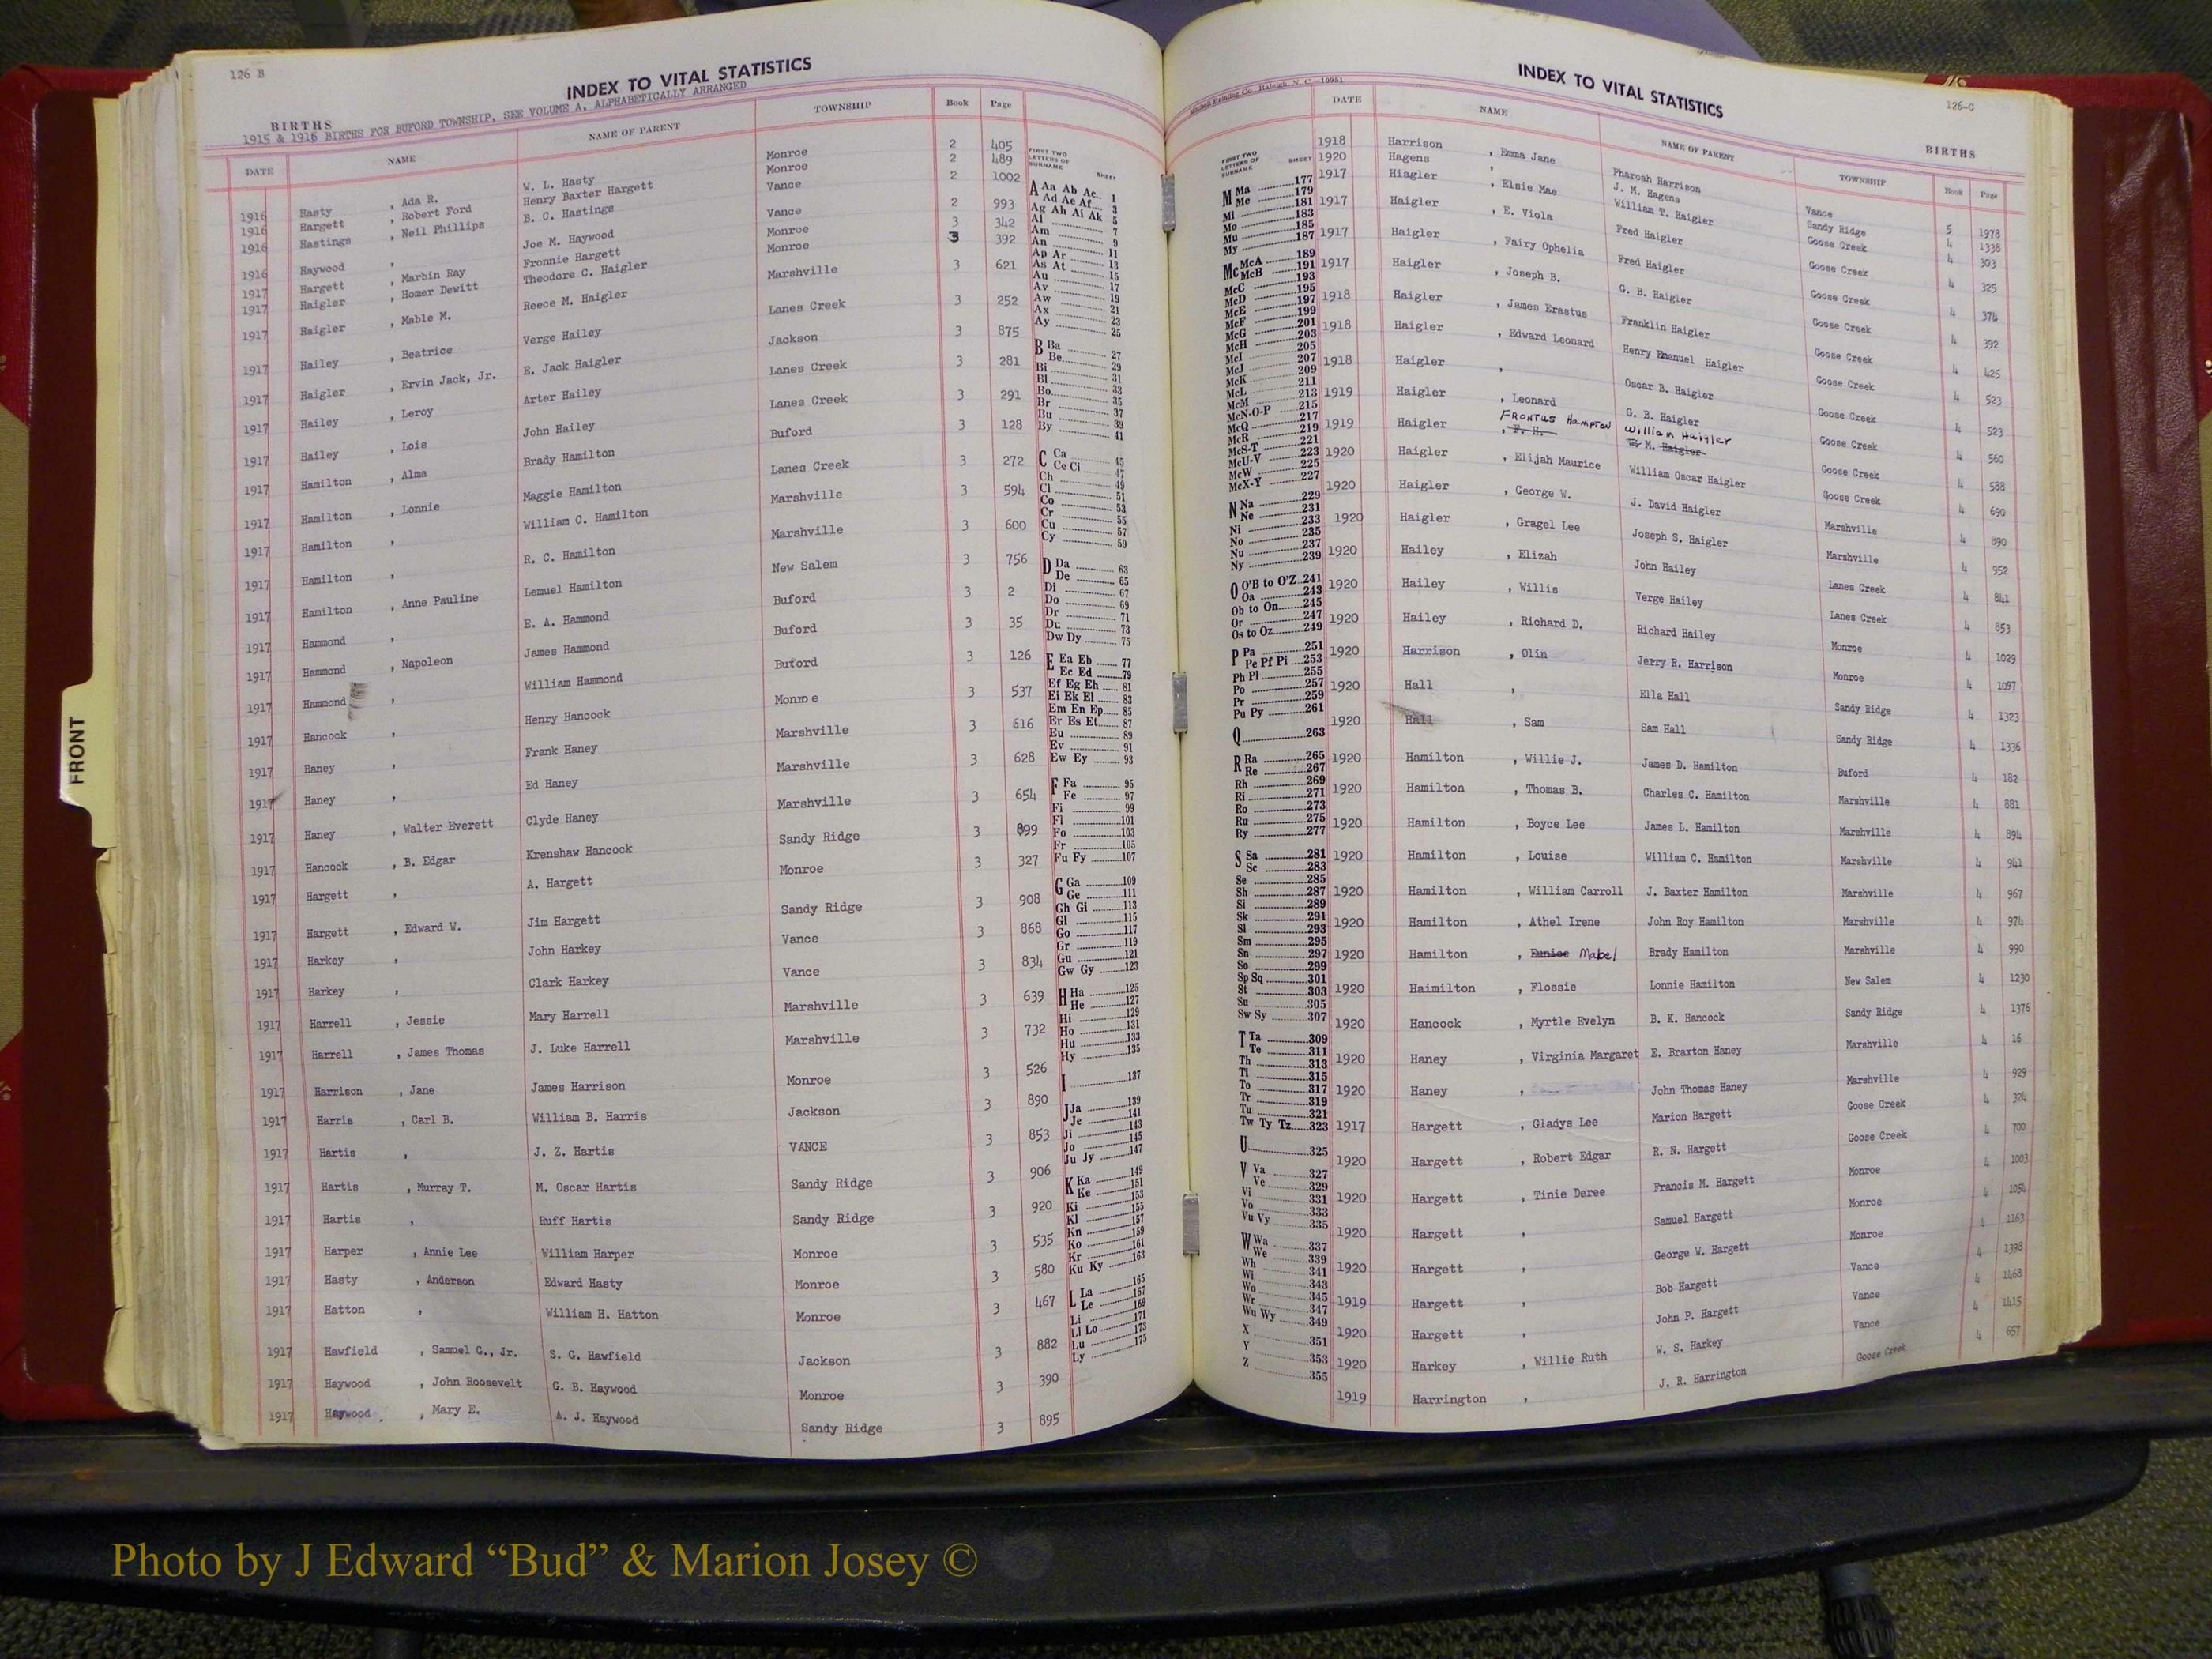 126 B
INDEX TO VITAL STATISTICS
BIRTHS
1915 & 1916 BIRTHS FOR BUFORD TOWNSHIP, SEE VOLUME A, ALPHABETICALLY ARRANGED
DATE NAME NAME OF PARENT TOWNSHIP Book Page
1916 Hasty , Ada R. W. L. Hasty Monroe 2 405
1916 Hargett , Robert Ford Henry Baxter Hargett Monroe 2 489
1916 Hastings , Neil Phillips B. C. Hastings Vance 2 1002
1916 Haywood , Joe M. Haywood Vance 2 993
1917 Hargett , Marbin Ray Fronnie Hargett Monroe 3 342
1917 Haigler , Homer Dewitt Theodore C. Haigler Monroe 3 392
1917 Haigler , Mable M. Reece M. Haigler Marshville 3 621
1917 Hailey , Beatrice Verge Hailey Lanes Creek 3 252
1917 Haigler , Ervin Jack, Jr. E. Jack Haigler Jackson 3 875
1917 Hailey , Leroy Arter Hailey Lanes Creek 3 281
1917 Hailey , Lois John Hailey Lanes Creek 3 291
1917 Hamilton , Alma Brady Hamilton Buford 3 128
1917 Hamilton , Lonnie Maggie Hamilton Lanes Creek 3 272
1917 Hamilton , William C. Hamilton Marshville 3 594
1917 Hamilton , R. C. Hamilton Marshville 3 600
1917 Hamilton , Anne Pauline Lemuel Hamilton New Salem 3 756
1917 Hammond , E. A. Hammond Buford 3 2
1917 Hammond , Napoleon James Hammond Buford 3 35
1917 Hammond , William Hammond Buford 3 126
1917 Hancock , Henry Hancock Monroe 3 537
1917 Haney , Frank Haney Marshville 3 616
1917 Haney , Ed Haney Marshville 3 628
1917 Haney , Walter Everett Clyde Haney Marshville 3 654
1917 Hancock , B. Edgar Krenshaw Hancock Sandy Ridge 3 899
1917 Hargett , A. Hargett Monroe 3 327
1917 Hargett , Edward W. Jim Hargett Sandy Ridge 3 908
1917 Harkey , John Harkey Vance 3 868
1917 Harkey , Clark Harkey Vance 3 834
1917 Harrell , Jessie Mary Harrell Marshville 3 639
1917 Harrell , James Thomas J. Luke Harrell Marshville 3 732
1917 Harrison , Jane James Harrison Monroe 3 526
1917 Harris , Carl B. William B. Harris Jackson 3 890
1917 Hartis , J. Z. Hartis VANCE 3 853
1917 Hartis , Murray T. M. Oscar Hartis Sandy Ridge 3 906
1917 Hartis , Ruff Hartis Sandy Ridge 3 920
1917 Harper , Annie Lee William Harper Monroe 3 535
1917 Hasty , Anderson Edward Hasty Monroe 3 580
1917 Hatton , William H. Hatton Monroe 3 467
1917 Hawfield , Samuel G., Jr. S. G. Hawfield Jackson 3 882
1917 Haywood , John Roosevelt G. B. Haywood Monroe 3 390
1917 Haywood , Mary E. A. J. Haywood Sandy Ridge 3 895
FIRST TWO LETTERS OF SURNAME SHEET
A Aa Ab Ac 1
Ad Ae Af 3
Ag Ah Ai Ak 5
Al 7
Am 9
An 11
Ap Ar 13
As At 15
Au 17
Av 19
Aw 21
Ax 23
Ay 25
B Ba 27
Be 29
Bi 31
Bl 33
Bo 35
Br 37
Bu 39
By 41
C Ca 45
Ce Ci 47
Ch 49
Cl 51
Co 53
Cr 55
Cu 57
Cy 59
D Da 63
De 65
Di 67
Do 69
Dr 71
Du 73
Dw Dy 75
E Ea Eb 77
Ec Ed 79
Ef Eg Eh 81
Ei Ek El 83
Em En Ep 85
Er Es Et 87
Eu 89
Ev 91
Ew Ey 93
F Fa 95
Fe 97
Fi 99
Fl 101
Fo 103
Fr 105
Fu Fy 107
G Ga 109
Ge 111
Gh Gi 113
Gl 115
Go 117
Gr 119
Gu 121
Gw Gy 123
H Ha 125
He 127
Hi 129
Ho 131
Hu 133
Hy 135
I 137
J Ja 139
Je 141
Ji 143
Jo 145
Ju Jy 147
K Ka 149
Ke 151
Ki 153
Kl 155
Kn 157
Ko 159
Kr 161
Ku Ky 163
L La 165
Le 167
Li 169
Ll Lo 171
Lu 173
Ly 175
Printing Co., Raleigh, N. C.—10951
INDEX TO VITAL STATISTICS
126-C
BIRTHS
FIRST TWO LETTERS OF SURNAME SHEET
M Ma 177
Me 179
Mi 181
Mo 183
Mu 185
My 187
Mc McA 189
McB 191
McC 193
McD 195
McE 197
McF 199
McG 201
McH 203
McI 205
McJ 207
McK 209
McL 211
McM 213
McN-O-P 215
McQ 217
McR 219
McS-T 221
McU-V 223
McW 225
McX-Y 227
N Na 229
Ne 231
Ni 233
No 235
Nu 237
Ny 239
O O'B to O'Z 241
Oa 243
Ob to On 245
Or 247
Os to Oz 249
P Pa 251
Pe Pf Pi 253
Ph Pl 255
Po 257
Pr 259
Pu Py 261
Q 263
R Ra 265
Re 267
Rh 269
Ri 271
Ro 273
Ru 275
Ry 277
S Sa 281
Sc 283
Se 285
Sh 287
Si 289
Sk 291
Sl 293
Sm 295
Sn 297
So 299
Sp Sq 301
St 303
Su 305
Sw Sy 307
T Ta 309
Te 311
Th 313
Ti 315
To 317
Tr 319
Tu 321
Tw Ty Tz 323
U 325
V Va 327
Ve 329
Vi 331
Vo 333
Vu Vy 335
W Wa 337
We 339
Wh 341
Wi 343
Wo 345
Wr 347
Wu Wy 349
X 351
Y 353
Z 355
DATE NAME NAME OF PARENT TOWNSHIP Book Page
1918 Harrison , Emma Jane Pharoah Harrison Vance 5 1978
1920 Hagens , J. M. Hagens Sandy Ridge 4 1338
1917 Hiagler , Elsie Mae William T. Haigler Goose Creek 4 303
1917 Haigler , E. Viola Fred Haigler Goose Creek 4 325
1917 Haigler , Fairy Ophelia Fred Haigler Goose Creek 4 374
1917 Haigler , Joseph B. G. B. Haigler Goose Creek 4 392
1918 Haigler , James Erastus Franklin Haigler Goose Creek 4 425
1918 Haigler , Edward Leonard Henry Emanuel Haigler Goose Creek 4 523
1918 Haigler , Oscar B. Haigler Goose Creek 4 523
1919 Haigler , Leonard G. B. Haigler Goose Creek 4 560
1919 Haigler Frontus Hampton , F. H. William Haigler M. Haigler Goose Creek 4 588
1920 Haigler , Elijah Maurice William Oscar Haigler Goose Creek 4 690
1920 Haigler , George W. J. David Haigler Marshville 4 890
1920 Haigler , Gragel Lee Joseph S. Haigler Marshville 4 952
1920 Hailey , Elizah John Hailey Lanes Creek 4 841
1920 Hailey , Willis Verge Hailey Lanes Creek 4 853
1920 Hailey , Richard D. Richard Hailey Monroe 4 1029
1920 Harrison , Olin Jerry R. Harrison Monroe 4 1097
1920 Hall , Ella Hall Sandy Ridge 4 1323
1920 Hall , Sam Sam Hall Sandy Ridge 4 1336
1920 Hamilton , Willie J. James D. Hamilton Buford 4 182
1920 Hamilton , Thomas B. Charles C. Hamilton Marshville 4 881
1920 Hamilton , Boyce Lee James L. Hamilton Marshville 4 894
1920 Hamilton , Louise William C. Hamilton Marshville 4 941
1920 Hamilton , William Carroll J. Baxter Hamilton Marshville 4 967
1920 Hamilton , Athel Irene John Roy Hamilton Marshville 4 974
1920 Hamilton , Eunice Mabel Brady Hamilton Marshville 4 990
1920 Haimilton , Flossie Lonnie Hamilton New Salem 4 1230
1920 Hancock , Myrtle Evelyn B. K. Hancock Sandy Ridge 4 1376
1920 Haney , Virginia Margaret E. Braxton Haney Marshville 4 16
1920 Haney , John Thomas Haney Marshville 4 929
1917 Hargett , Gladys Lee Marion Hargett Goose Creek 4 324
1920 Hargett , Robert Edgar R. N. Hargett Goose Creek 4 700
1920 Hargett , Tinie Deree Francis M. Hargett Monroe 4 1003
1920 Hargett , Samuel Hargett Monroe 4 1054
1920 Hargett , George W. Hargett Monroe 4 1163
1919 Hargett , Bob Hargett Vance 4 1398
1920 Hargett , John P. Hargett Vance 4 1468
1920 Harkey , Willie Ruth W. S. Harkey Vance 4 1415
1919 Harrington , J. R. Harrington Goose Creek 4 657
FRONT
Photo by J Edward “Bud” & Marion Josey ©